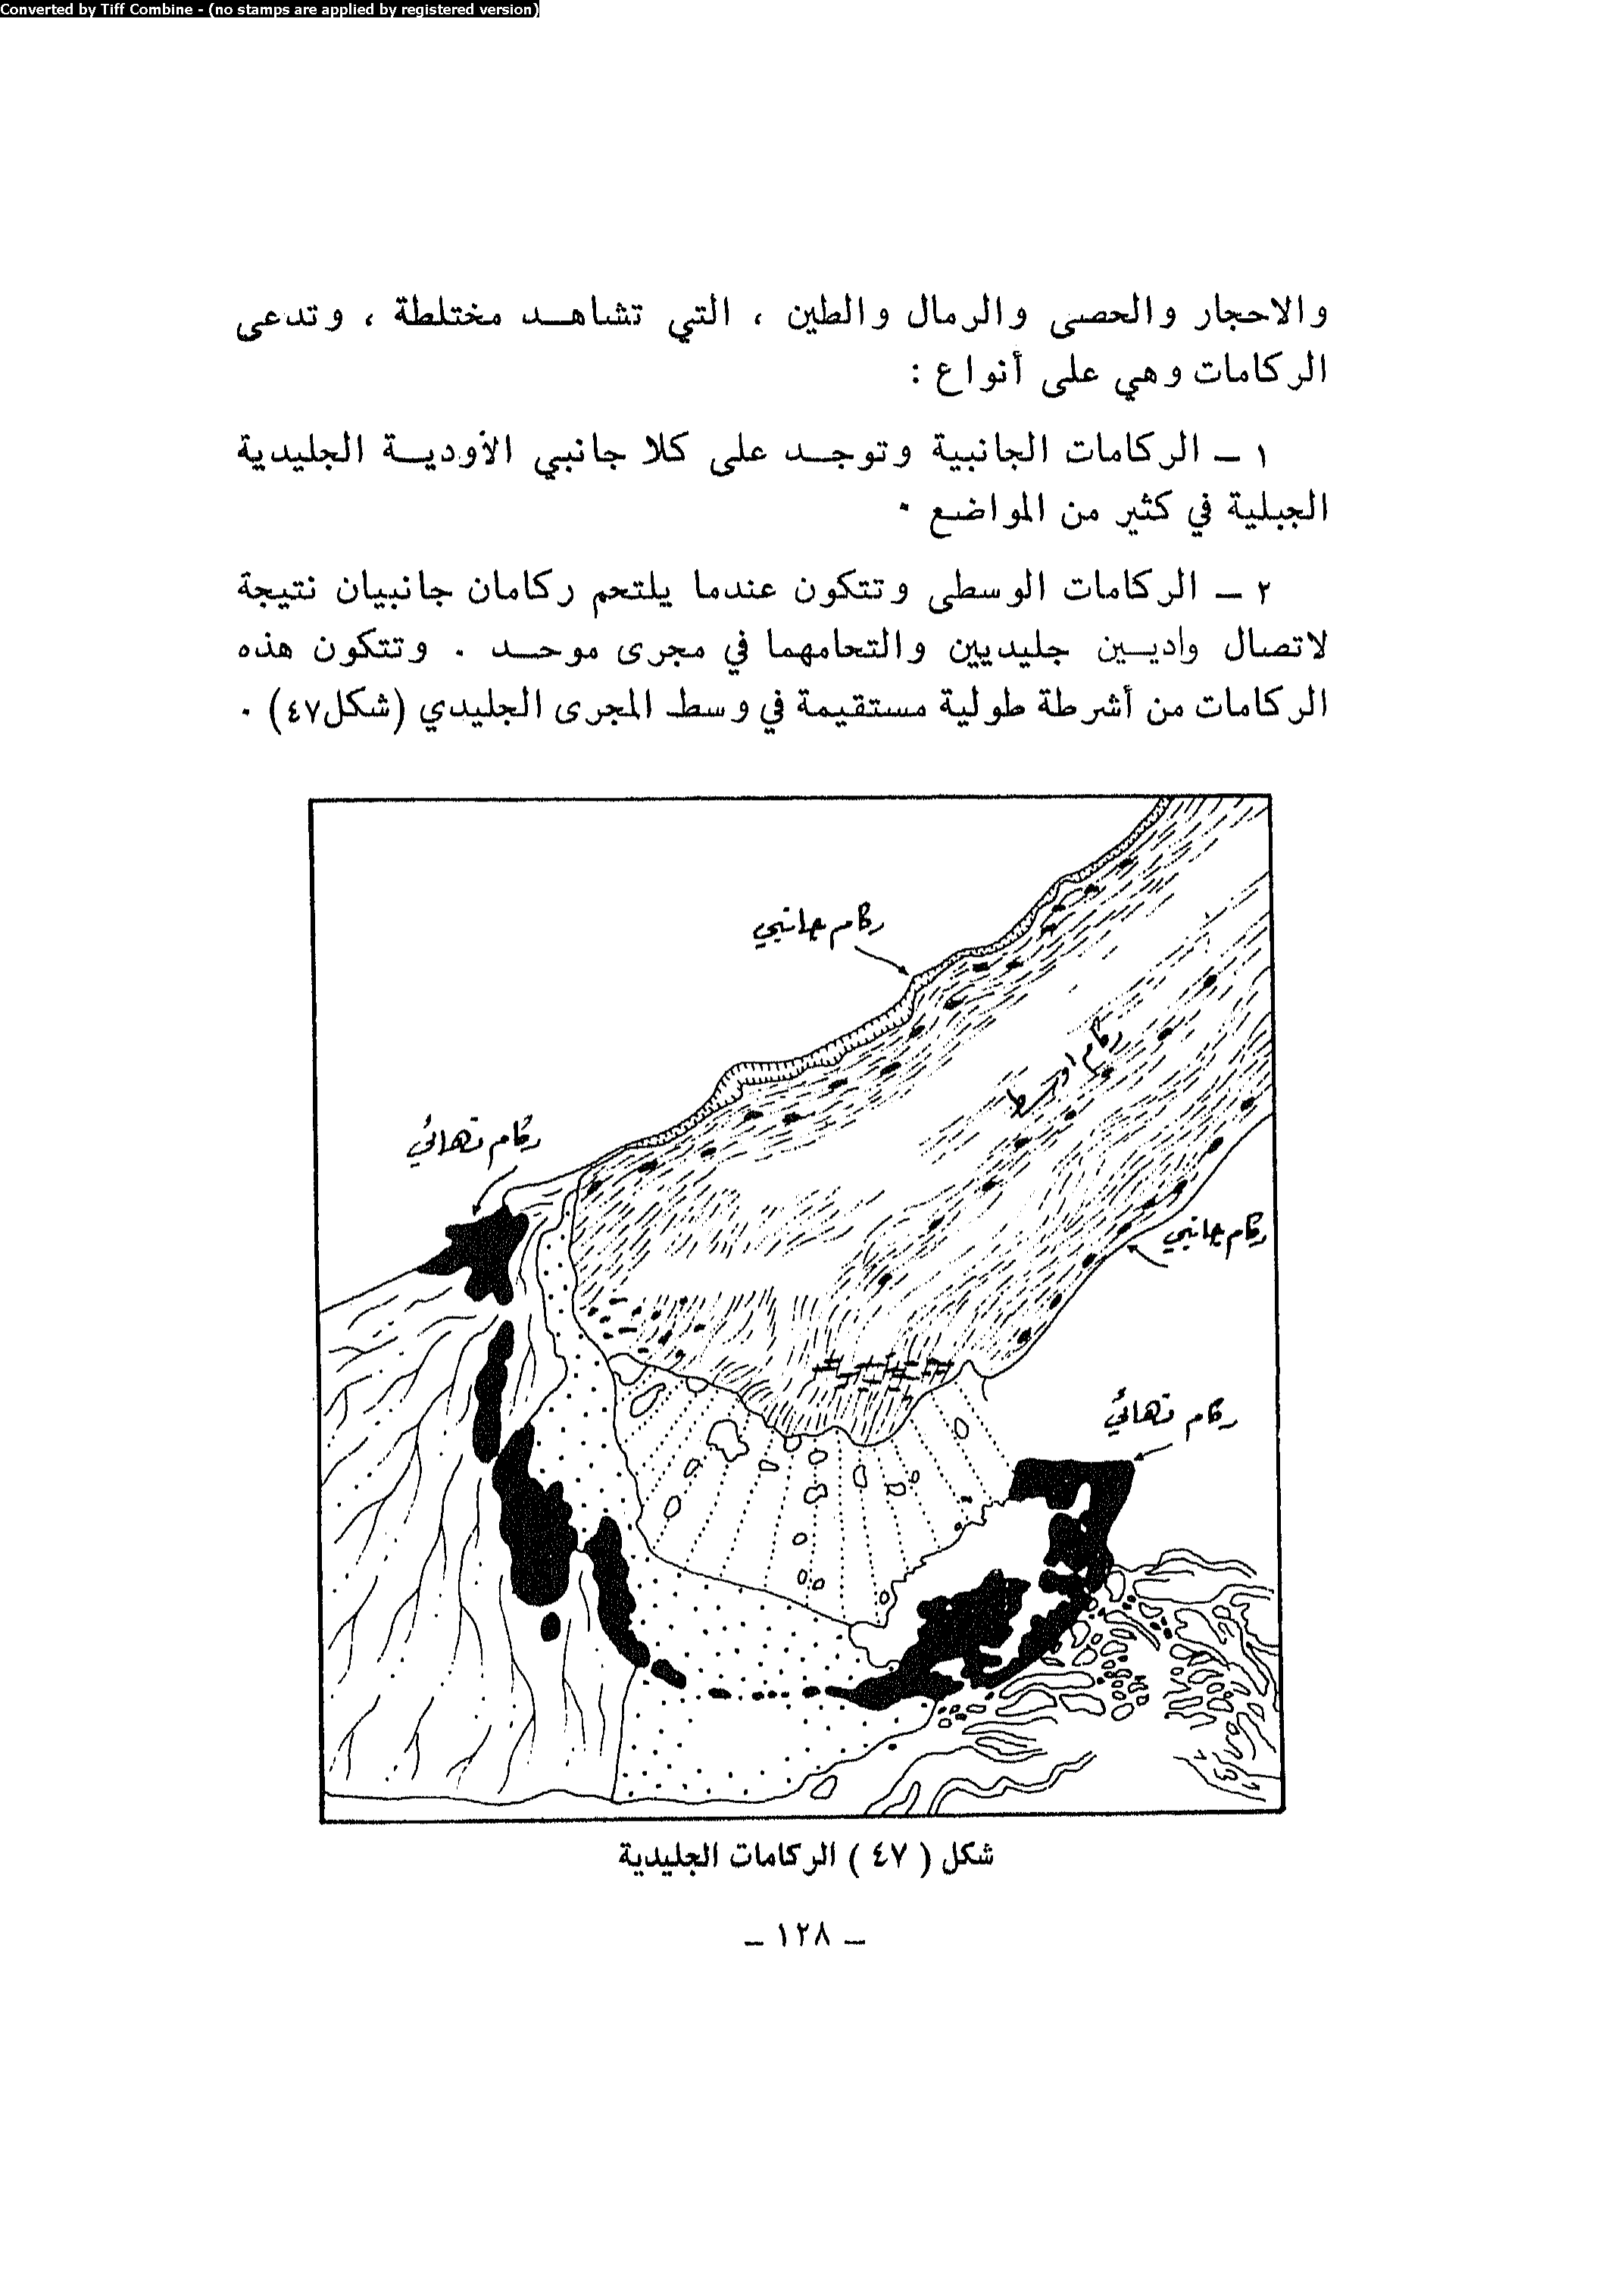 Converted by Tiff Combine - (no stamps are applied by registered version)
والاحجار والحصى والرمال والطين ، التي تشاهد مختلطة ، وتدعى
الركامات وهي على أنواع :
١ – الركامات الجانبية وتوجد على كلا جانبي الأودية الجليدية
الجبلية في كثير من المواضع ٠
٢ – الركامات الوسطى وتتكون عندما يلتحم ركامان جانبيان نتيجة
لاتصال واديين جليديين والتحامهما في مجرى موحد ٠ وتتكون هذه
الركامات من أشرطة طولية مستقيمة في وسط المجرى الجليدي (شكل٤٧) ٠
ركام جانبي
ركام اوسط
ركام نهائي
ركام جانبي
ركام نهائي
شكل ( ٤٧ ) الركامات الجليدية
– ١٢٨ –